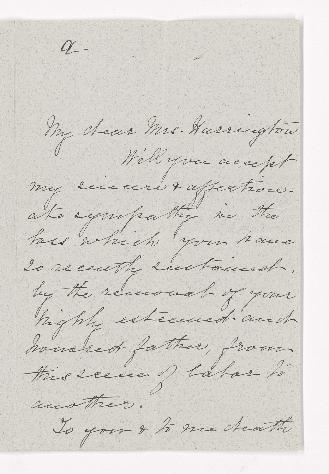 a-
My dear Mrs. Harrington
Will you accept
my sincere & affection-
ate sympathy in the
loss which you have
so recently sustained,
by the removal of your
highly esteemed and
honored father, from
this scene of labor to
another.
To you & to me death